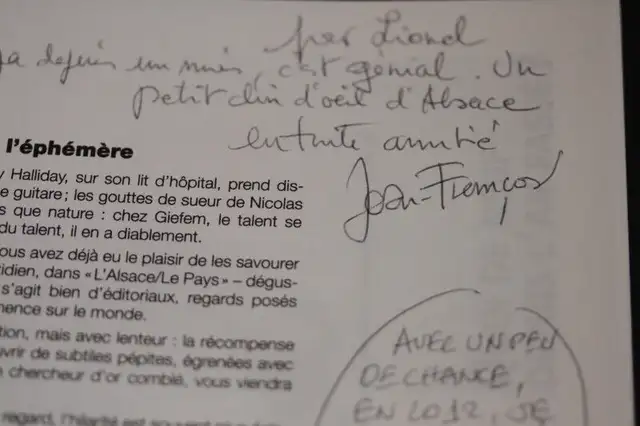 par Lionel
ça depuis un mois, c'est génial. Un
petit clin d'oeil d'Alsace
en toute amitié
Jean-François
l'éphémère
y Halliday, sur son lit d'hôpital, prend dis-
e guitare; les gouttes de sueur de Nicolas
s que nature : chez Giefem, le talent se
du talent, il en a diablement.
ous avez déjà eu le plaisir de les savourer
tidien, dans «L'Alsace/Le Pays» – dégus-
s'agit bien d'éditoriaux, regards posés
nence sur le monde.
tion, mais avec lenteur : la récompense
uvrir de subtiles pépites, égrenées avec
n chercheur d'or comblé, vous viendra
regard, l'hilarité est souvent
AVEC UN PEU
DE CHANCE,
EN 2012, JE